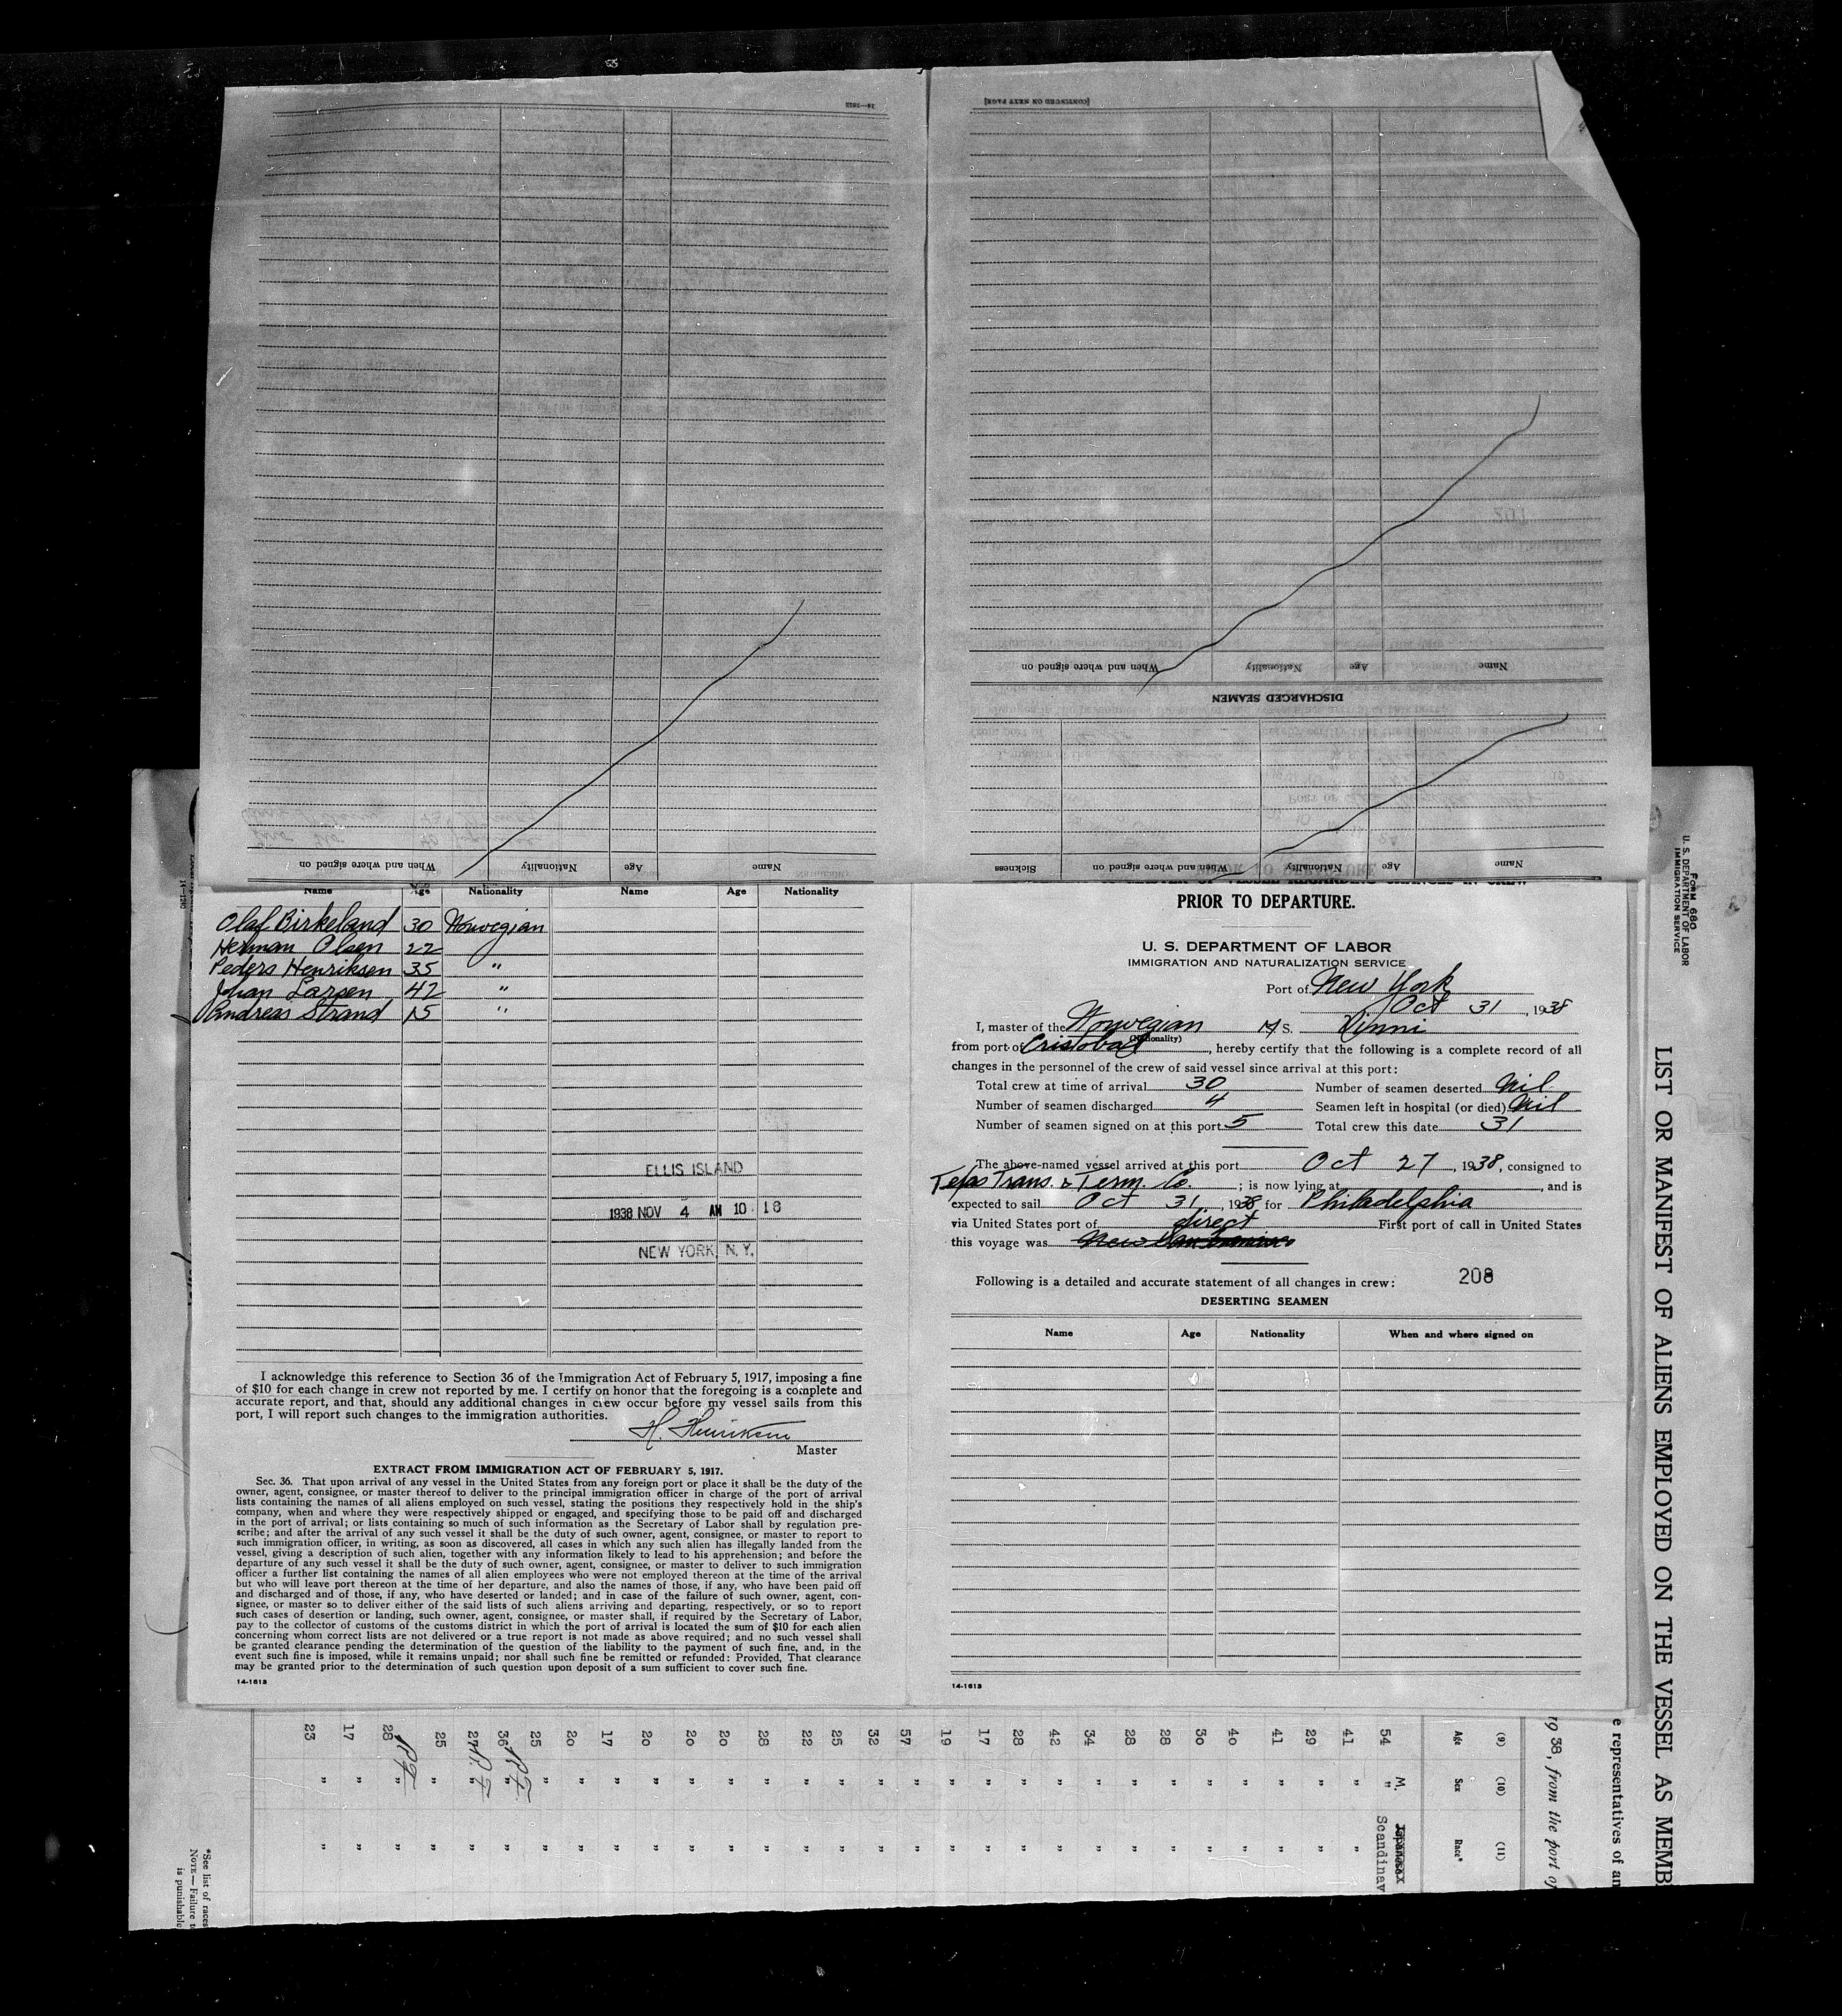 14—1613
[CONTINUED ON NEXT PAGE]
When and where signed on Nationality Age Name
DISCHARGED SEAMEN
Sickness When and where signed on Nationality Age Name
When and where signed on Nationality Age Name
Name Age Nationality Name Age Nationality
Olaf Birkeland 30 Norwegian
Herman Olsen 22
Peders Henriksen 35 "
Johan Larsen 42 "
Andreas Strand 15 "
ELLIS ISLAND
1938 NOV 4 AM 10 18
NEW YORK, N. Y.
I acknowledge this reference to Section 36 of the Immigration Act of February 5, 1917, imposing a fine
of $10 for each change in crew not reported by me. I certify on honor that the foregoing is a complete and
accurate report, and that, should any additional changes in crew occur before my vessel sails from this
port, I will report such changes to the immigration authorities.
H. Henriksen
Master
EXTRACT FROM IMMIGRATION ACT OF FEBRUARY 5, 1917.
Sec. 36. That upon arrival of any vessel in the United States from any foreign port or place it shall be the duty of the
owner, agent, consignee, or master thereof to deliver to the principal immigration officer in charge of the port of arrival
lists containing the names of all aliens employed on such vessel, stating the positions they respectively hold in the ship's
company, when and where they were respectively shipped or engaged, and specifying those to be paid off and discharged
in the port of arrival; or lists containing so much of such information as the Secretary of Labor shall by regulation pre-
scribe; and after the arrival of any such vessel it shall be the duty of such owner, agent, consignee, or master to report to
such immigration officer, in writing, as soon as discovered, all cases in which any such alien has illegally landed from the
vessel, giving a description of such alien, together with any information likely to lead to his apprehension; and before the
departure of any such vessel it shall be the duty of such owner, agent, consignee, or master to deliver to such immigration
officer a further list containing the names of all alien employees who were not employed thereon at the time of the arrival
but who will leave port thereon at the time of her departure, and also the names of those, if any, who have been paid off
and discharged and of those, if any, who have deserted or landed; and in case of the failure of such owner, agent, con-
signee, or master so to deliver either of the said lists of such aliens arriving and departing, respectively, or so to report
such cases of desertion or landing, such owner, agent, consignee, or master shall, if required by the Secretary of Labor,
pay to the collector of customs of the customs district in which the port of arrival is located the sum of $10 for each alien
concerning whom correct lists are not delivered or a true report is not made as above required; and no such vessel shall
be granted clearance pending the determination of the question of the liability to the payment of such fine, and, in the
event such fine is imposed, while it remains unpaid; nor shall such fine be remitted or refunded: Provided, That clearance
may be granted prior to the determination of such question upon deposit of a sum sufficient to cover such fine.
14-1613
PRIOR TO DEPARTURE.
U. S. DEPARTMENT OF LABOR
IMMIGRATION AND NATURALIZATION SERVICE
Port of New York
Oct 31, 1938
I, master of the Norwegian M S. Vinni
(Nationality)
from port of Cristobal, hereby certify that the following is a complete record of all
changes in the personnel of the crew of said vessel since arrival at this port:
Total crew at time of arrival 30 Number of seamen deserted Nil
Number of seamen discharged 4 Seamen left in hospital (or died) Nil
Number of seamen signed on at this port 5 Total crew this date 31
The above-named vessel arrived at this port Oct 27, 1938, consigned to
Trans. & Term. Co. ; is now lying at , and is
expected to sail Oct 31, 1938 for Philadelphia
via United States port of direct First port of call in United States
this voyage was
Following is a detailed and accurate statement of all changes in crew: 208
DESERTING SEAMEN
Name Age Nationality When and where signed on
14-1613
FORM 680
U. S. DEPARTMENT OF LABOR
IMMIGRATION SERVICE
LIST OR MANIFEST OF ALIENS EMPLOYED ON THE VESSEL AS MEMB
e representatives of an
19 38, from the port of
(9) (10) (11)
Age Sex Race*
54 M. Scandinav
41 " "
29 " "
41 " "
40 " "
30 " "
28 " "
28 " "
34 " "
42 " "
28 " "
17 " "
19 " "
57 " "
32 " "
25 " "
22 " "
28 " "
20 " "
20 " "
20 " "
17 " "
20 " "
25 " "
36 " "
27 " "
25 " "
28 " "
17 " "
23 " "
*See list of races
NOTE—Failure t
is punishable